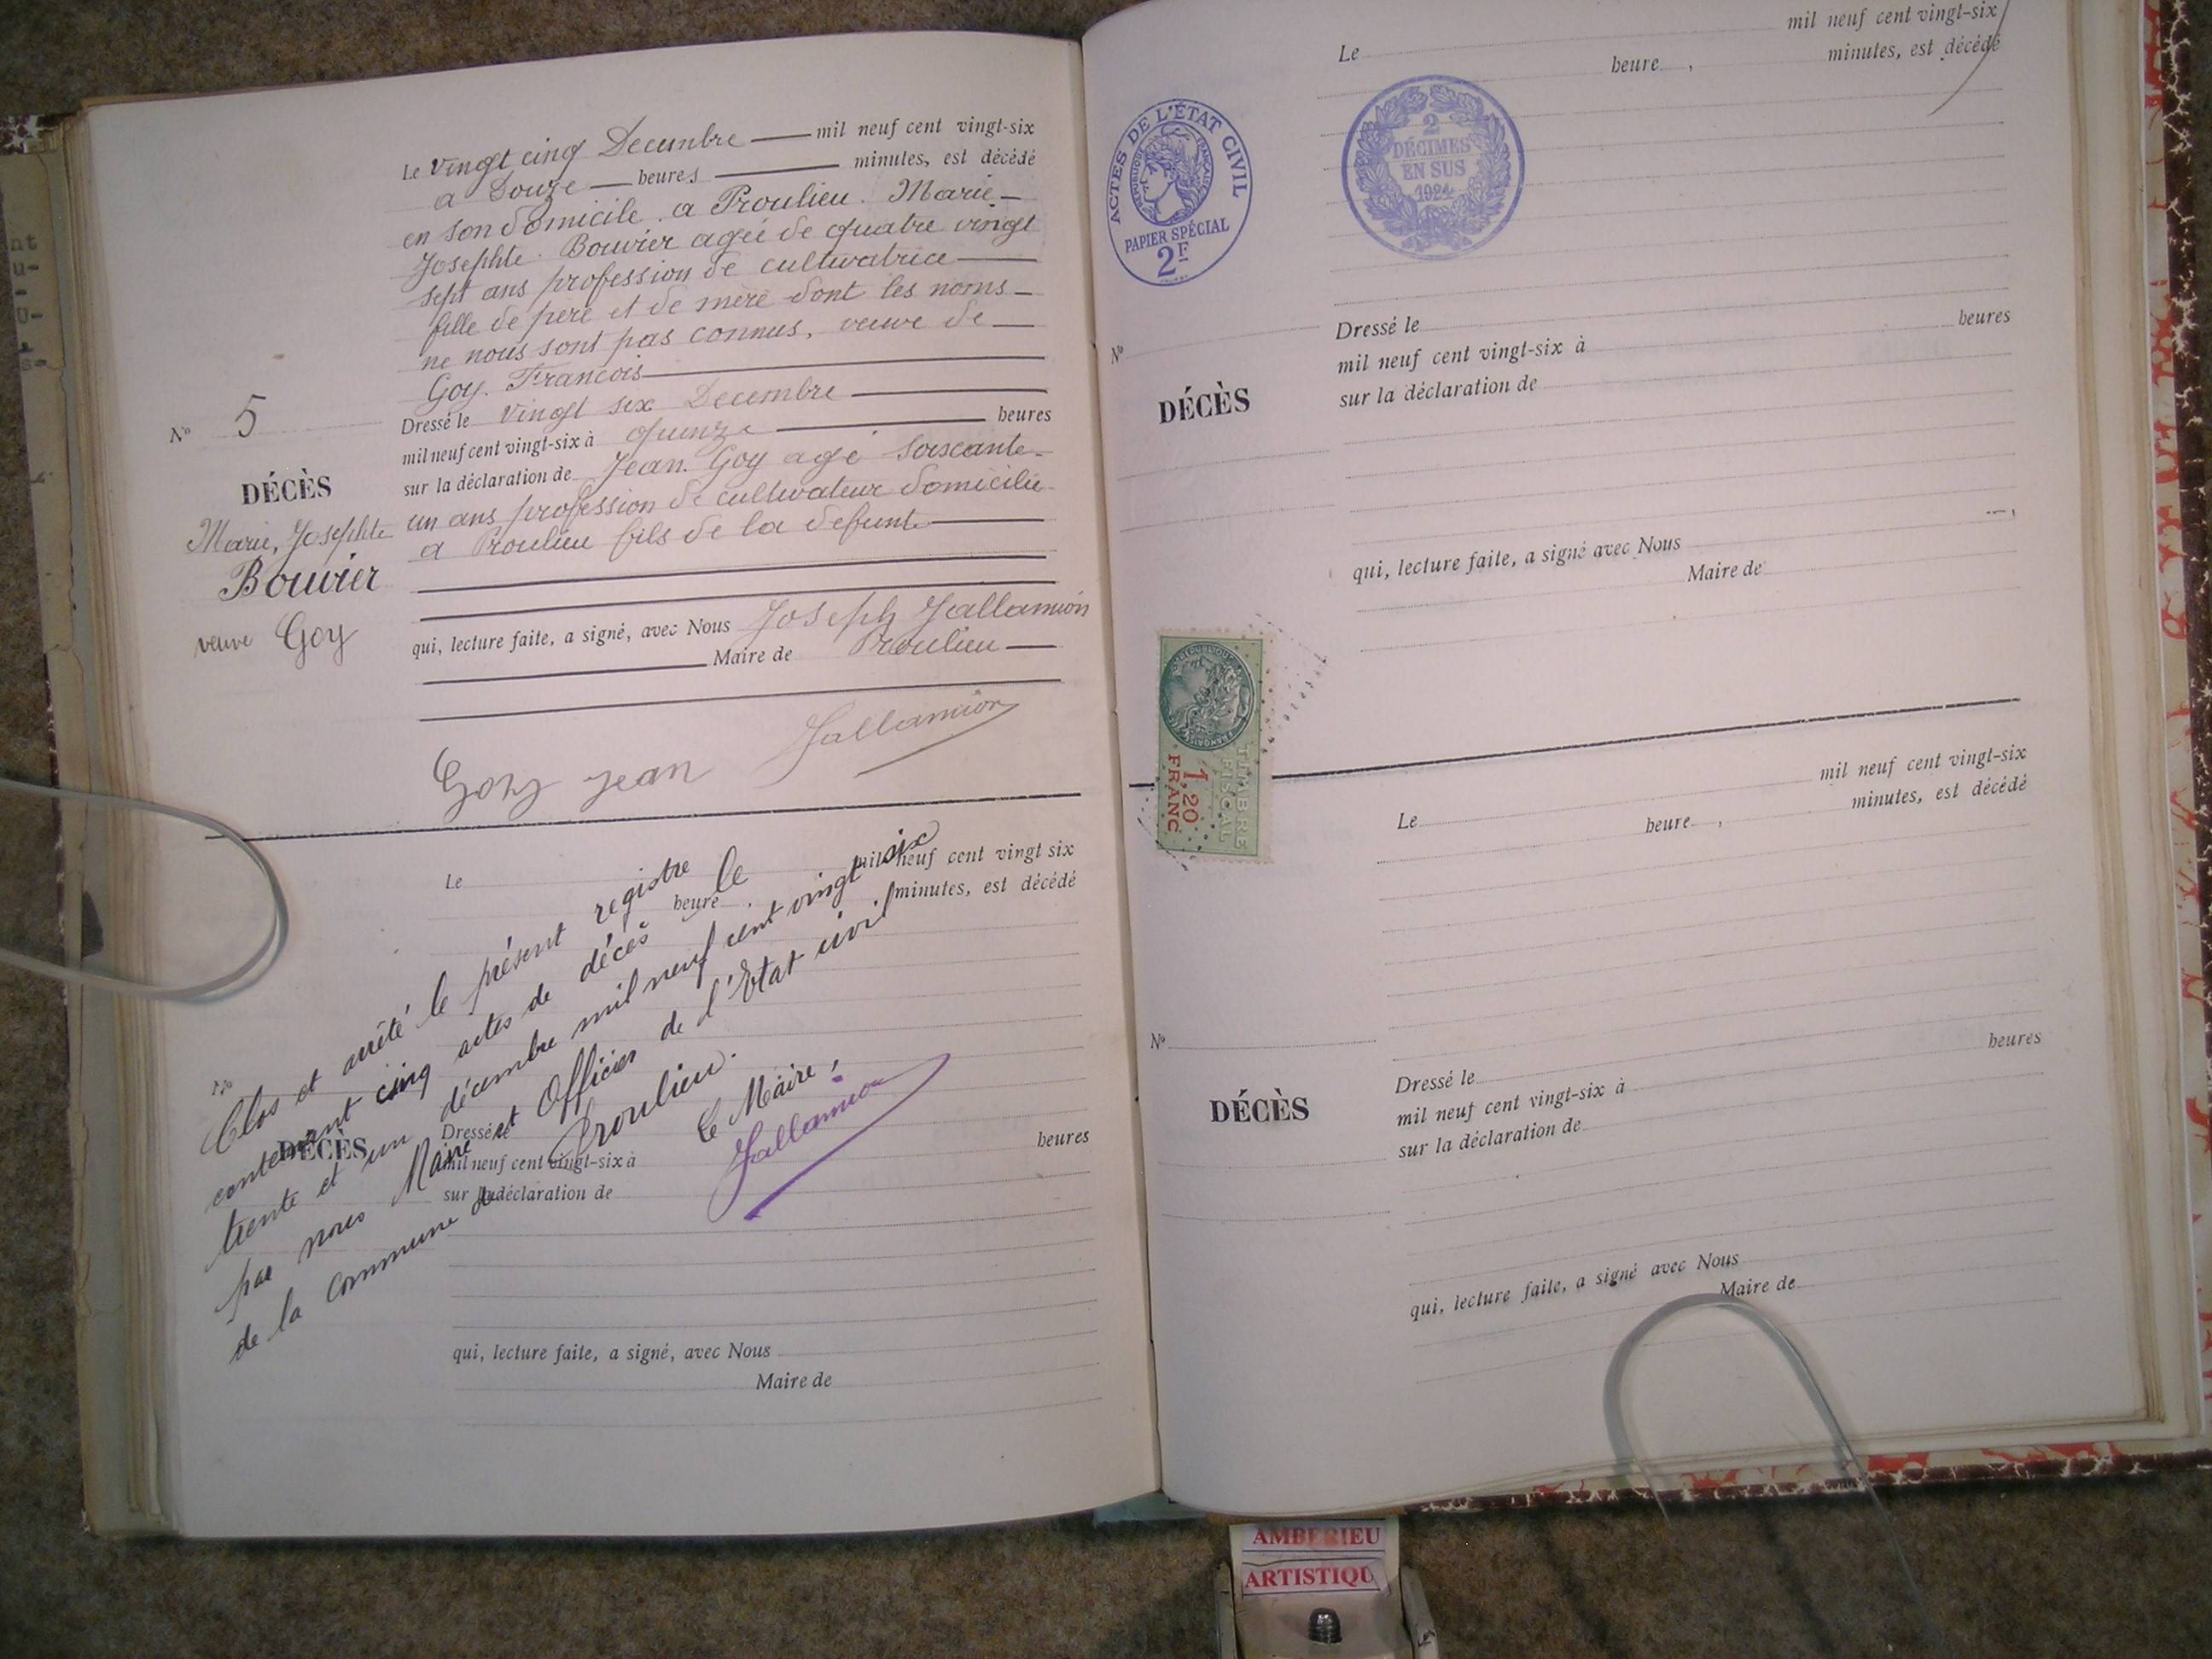 Le vingt cinq Decembre mil neuf cent vingt-six
a Douze heures minutes, est décédé
en son domicile a Proulieu. Marie
Josephte. Bouvier agée de quatre vingt
sept ans profession de cultivatrice
fille de père et de mère dont les noms
ne nous sont pas connus, veuve de
Goy. François
Nº 5
DÉCÈS
Marie, Josephte
Bouvier
veuve Goy
Dressé le vingt six Decembre
mil neuf cent vingt-six à quinze heures
sur la déclaration de Jean. Goy agé soixante
un ans profession de cultivateur domicilié
a Proulieu fils de la defunte
qui, lecture faite, a signé, avec Nous Joseph Jallamion
Maire de Proulieu
Goy jean Jallamion
Le mil neuf cent vingt six
heure , minutes, est décédé
Nº
DÉCÈS
Dressé le
mil neuf cent vingt-six à heures
sur la déclaration de
qui, lecture faite, a signé, avec Nous
Maire de
Clos et arrêté le présent registre
contenant cinq actes de décès le
trente et un décembre mil neuf cent vingt six
par nous Maire et Officier de l'Etat civil
de la commune de Proulieu.
Le Maire,
Jallamion
Le mil neuf cent vingt-six
heure , minutes, est décédé
ACTES DE L'ÉTAT CIVIL
RÉPUBLIQUE FRANÇAISE
PAPIER SPÉCIAL
2F
2
DÉCIMES
EN SUS
1924
Nº
DÉCÈS
Dressé le heures
mil neuf cent vingt-six à
sur la déclaration de
qui, lecture faite, a signé avec Nous
Maire de
RÉPUBLIQUE FRANÇAISE
TIMBRE
FISCAL
1,20
FRANC
Le mil neuf cent vingt-six
heure , minutes, est décédé
Nº
DÉCÈS
Dressé le heures
mil neuf cent vingt-six à
sur la déclaration de
qui, lecture faite, a signé avec Nous
Maire de
AMBERIEU
ARTISTIQU